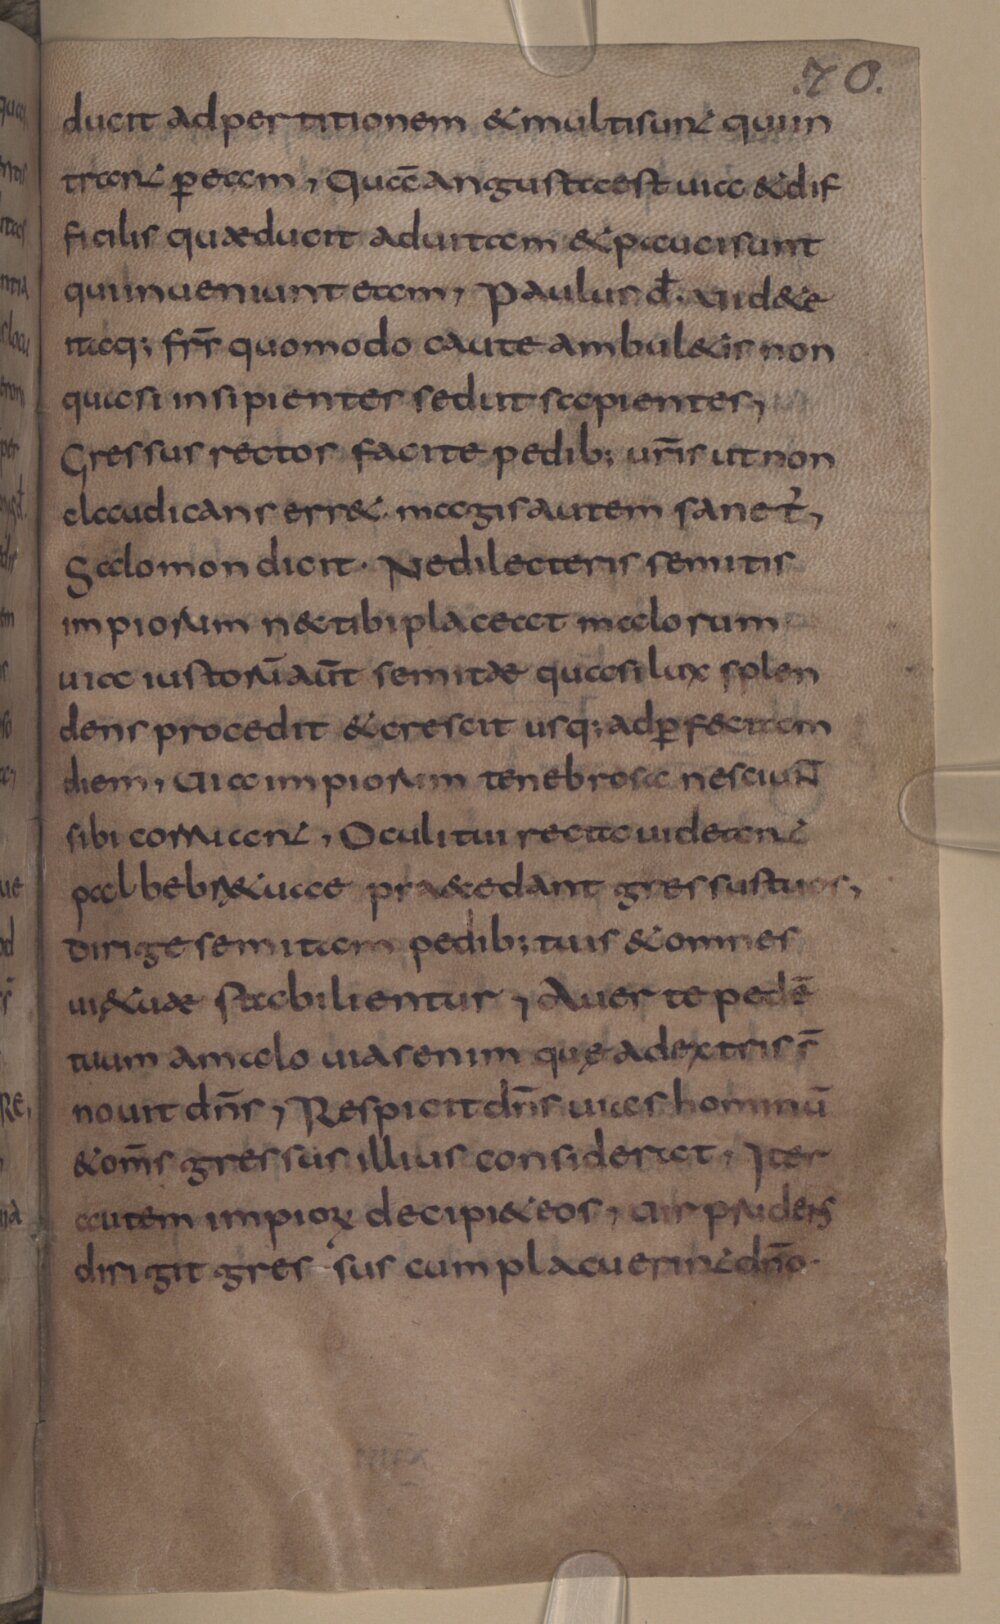 .70.
ducit ad pertitionem & multi sunt qui in
trant p̄ eam, Quā angusta est uia & dif
ficilis quæ ducit ad uitam & pauci sunt
qui inueniunt eam, Paulus đ. uid&e
itaq; fr̄s quomodo caute ambul&is non
quasi insipientes sed ut sapientes,
Gressus rectos facite pedib; ur̄is ut non
claudicans err&. magis autem san&ur,
Salomon dicit. Ne dilecteris semitis
impiorum n& tibi placeat malorum
uia iustorū aūt semitæ quasi lux splen
dens procedit & crescit usq; ad p̄f&tam
diem, Uia impiorum tenebrosa nesciuñt
sibi corruant, Oculi tui recta uideant
palbebr& uae præcedant gressus tuos,
Dirige semitam pedib; tuis & omnes
ui& uæ stabilientur, Auerte pedē
tuum a malo uias enim quę a dextris s̄
nouit dn̄s, Respicit dn̄s uias hominū
& om̄s gressus illius considerat, Iter
autem impioꝝ decipi& eos, Uir prudens
dirigit gressus cum placuerint dn̄o.